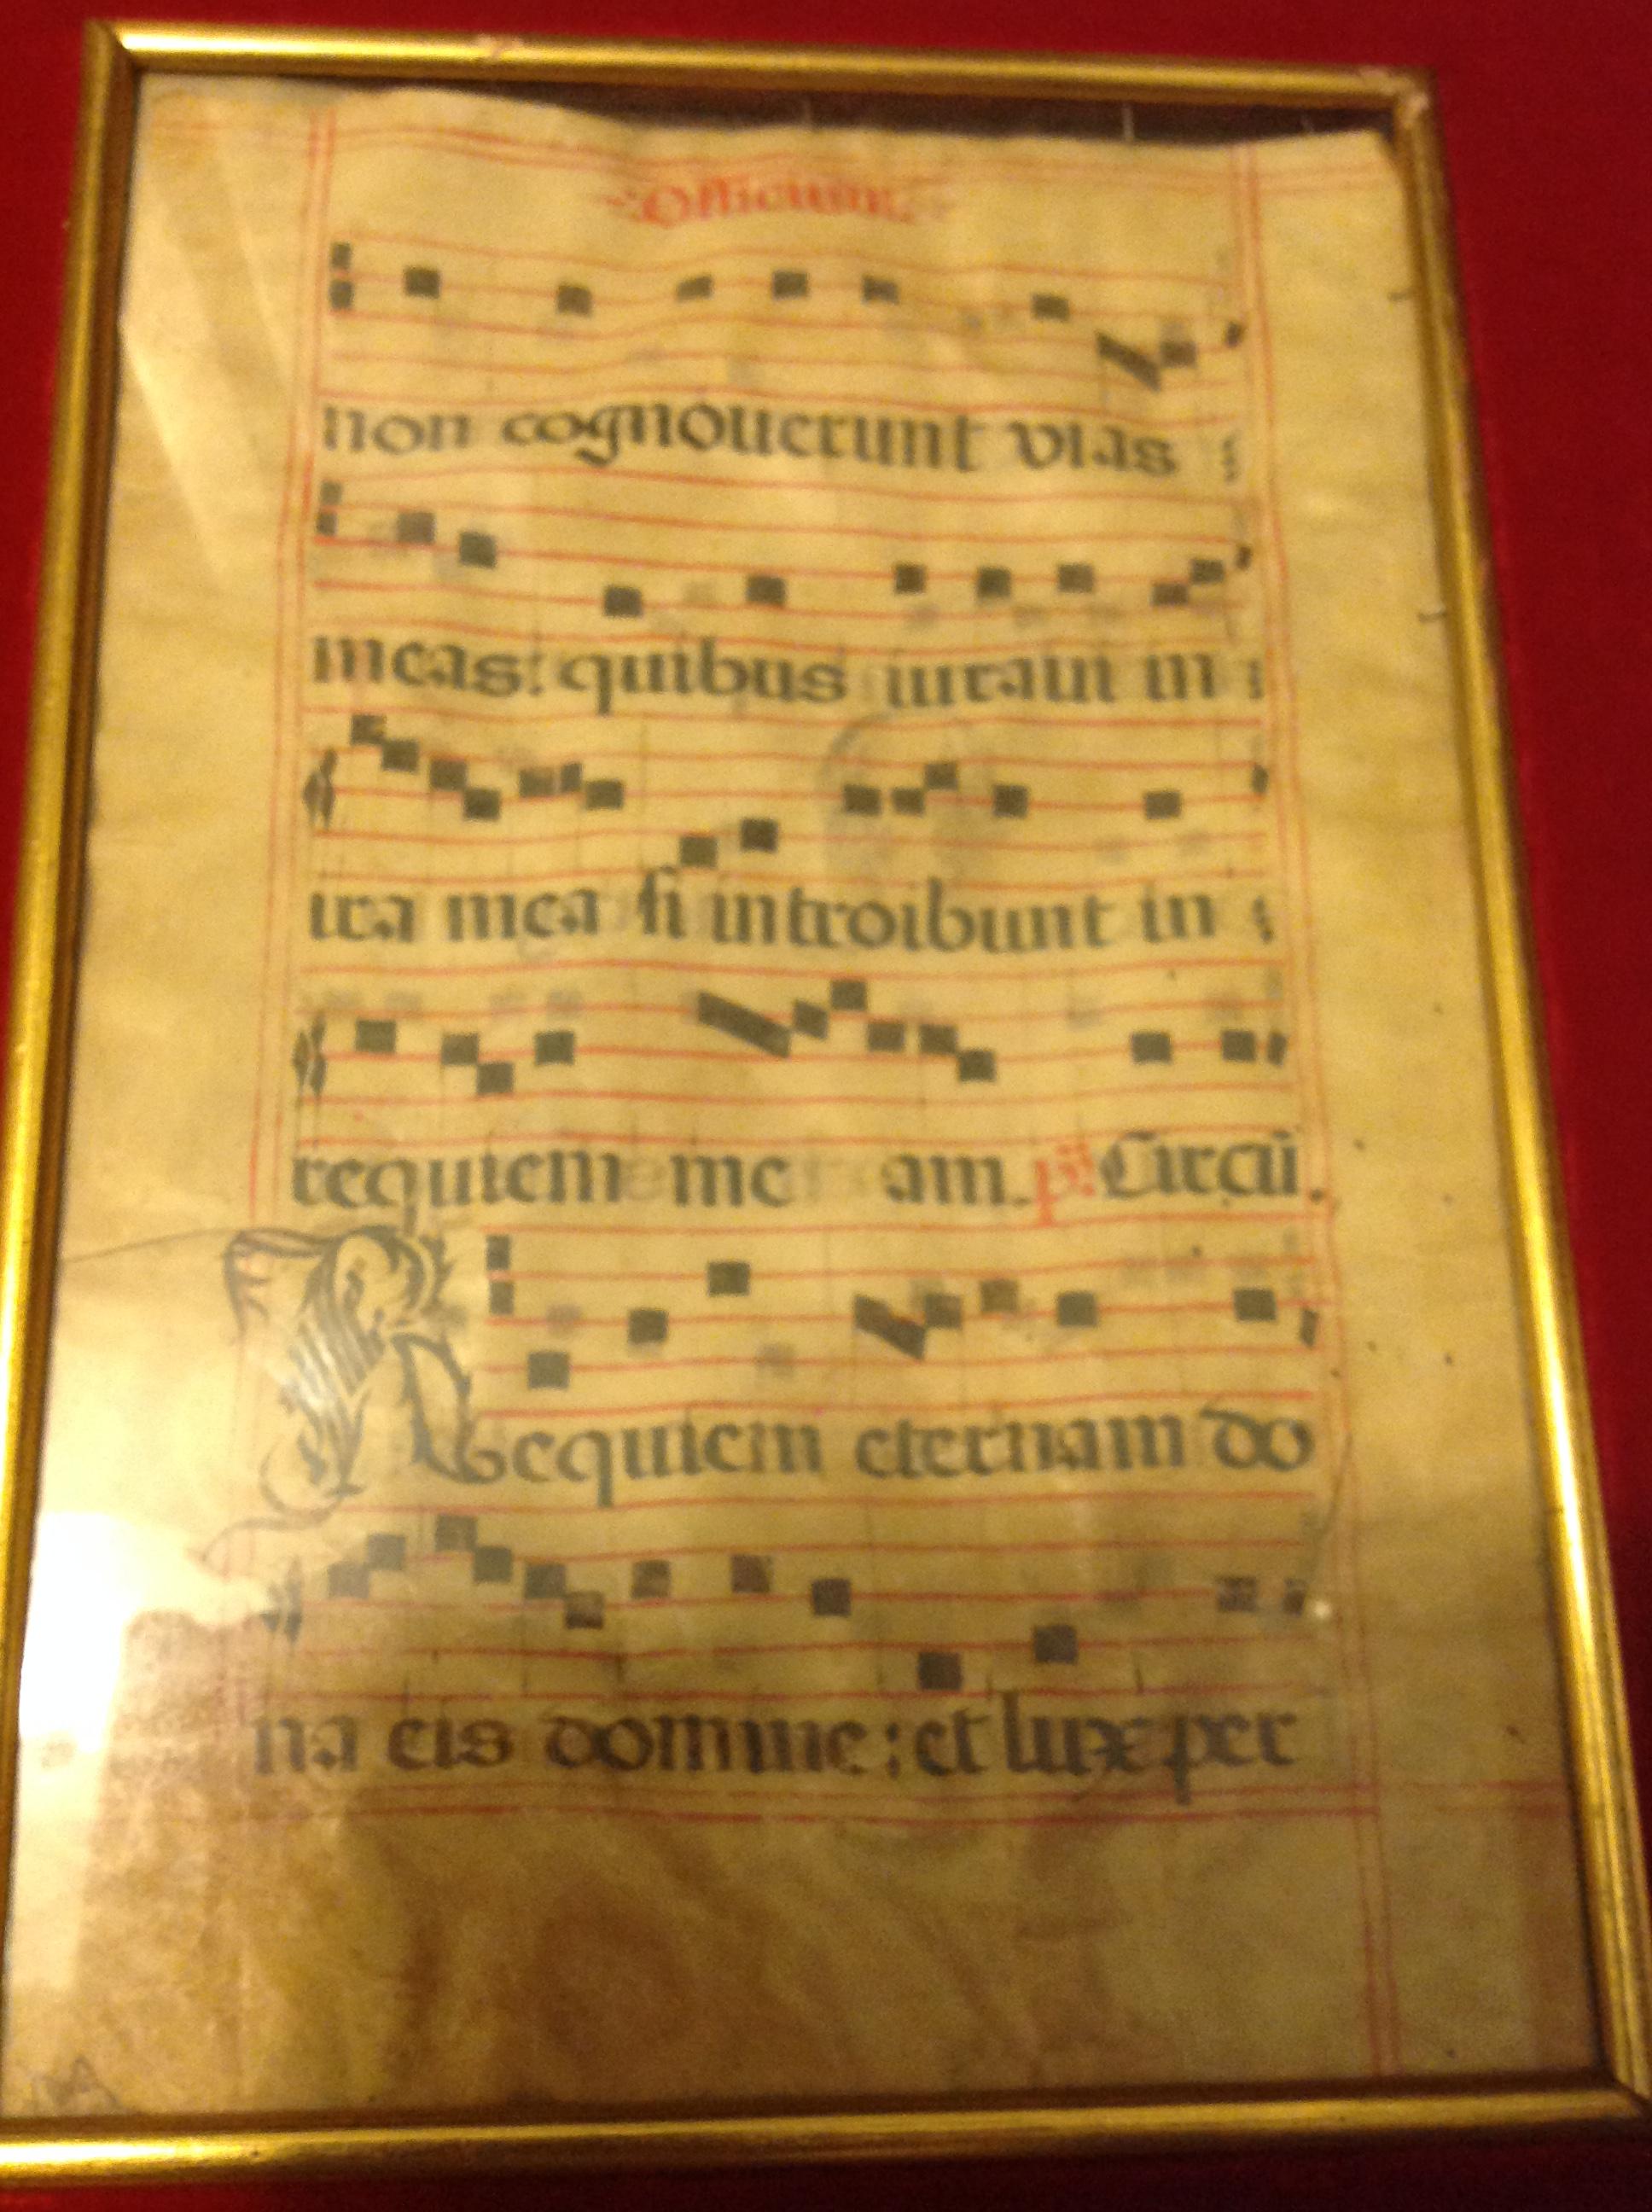 Officium
non cognouerunt vias
meas: quibus iuraui in
ira mea si introibunt in
requiem me am. ps. Circũ.
Requiem eternam do
na eis domine: et lux per